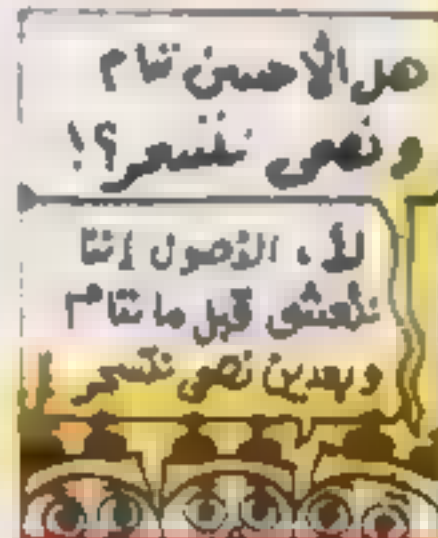 هل الأحسن ننام
ونصحى نتسحر؟!
لأ، الأصول إننا
نتعشى قبل ما ننام
وبعدين نصحى نتسحر !!